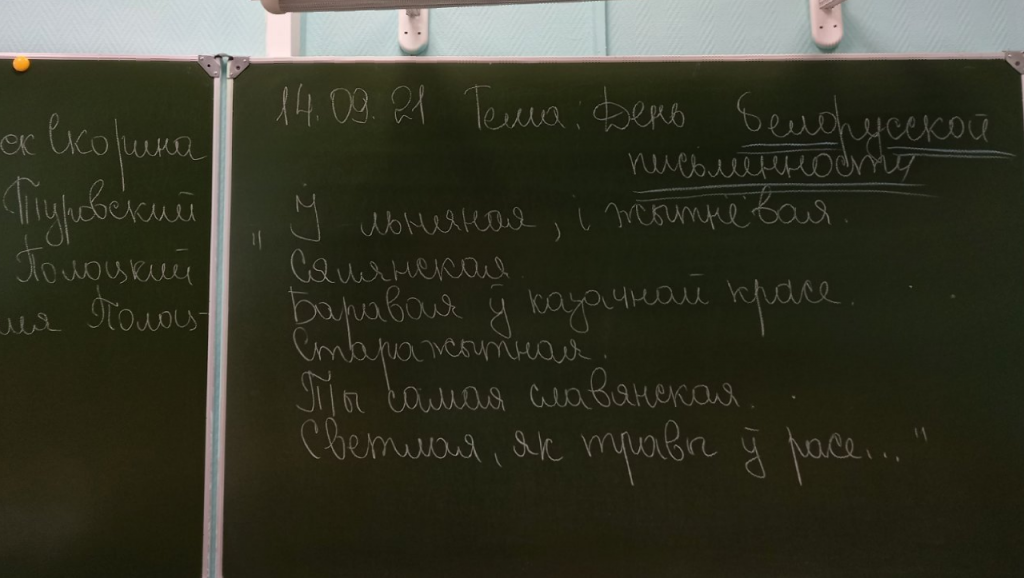 ск Скорина
Туровский
Полоцкий
мя Полоц-
14.09.21 Тема: День белорусской
письменности
" І льняная, і жытнёвая.
Сялянская.
Баравая ў казачнай красе.
Старажытная.
Ты самая славянская.
Светлая, як травы ў расе..."